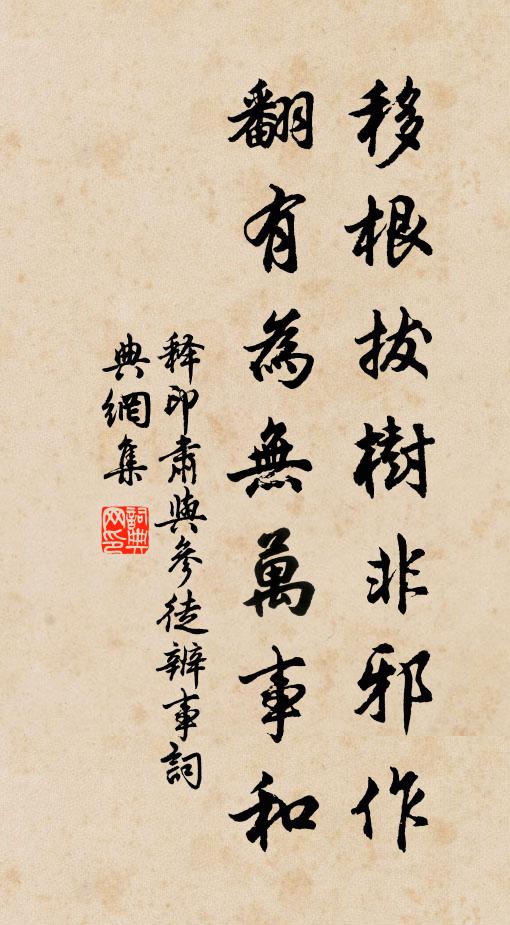 移根拔樹非邪作
翻有為無萬事和
释印肅與參徒辨事詞
典網集
詞典
网印